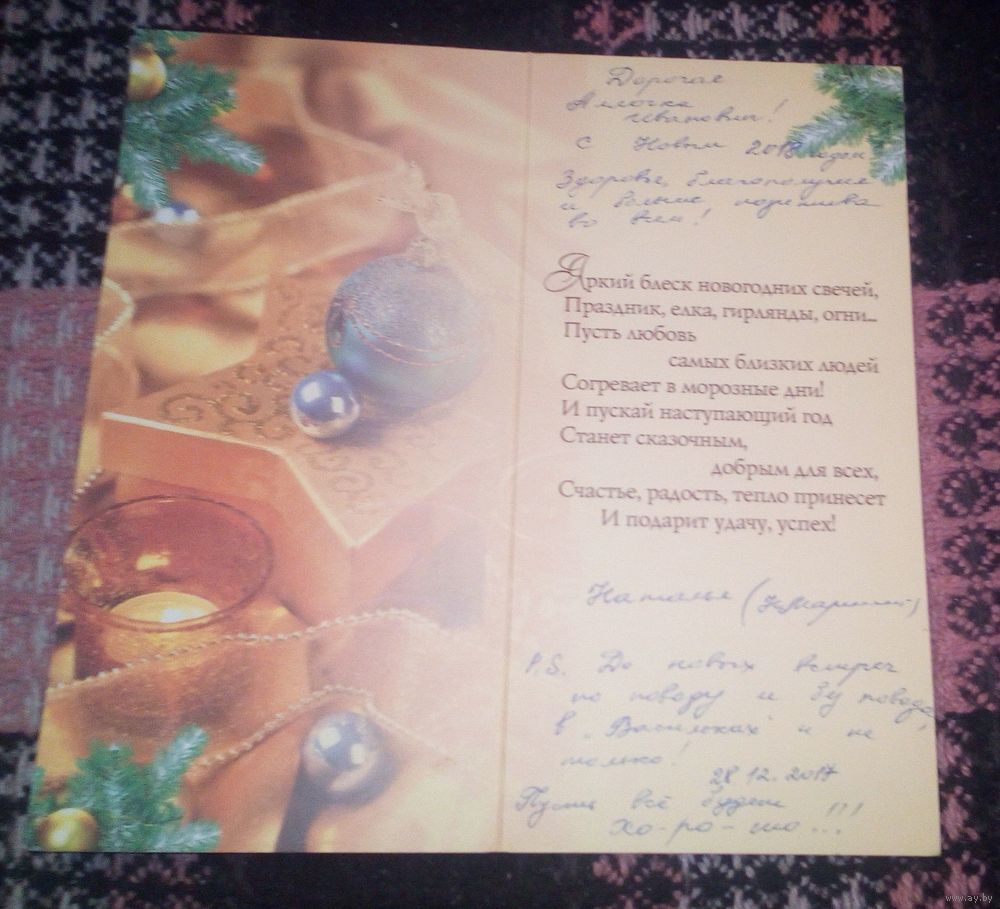 Дорогая
Аллочка
Ивановна!
С Новым 2018 годом
Здоровья, благополучия
и больше позитива
во всём!
Яркий блеск новогодних свечей,
Праздник, елка, гирлянды, огни...
Пусть любовь
самых близких людей
Согревает в морозные дни!
И пускай наступающий год
Станет сказочным,
добрым для всех,
Счастье, радость, тепло принесет
И подарит удачу, успех!
Наталья
P.S. До новых встреч
по поводу и без повода
в "Васильках" и не
только!
28.12.2017
Пусть всё будет
Хо-ро-шо...!!!
www.ay.by